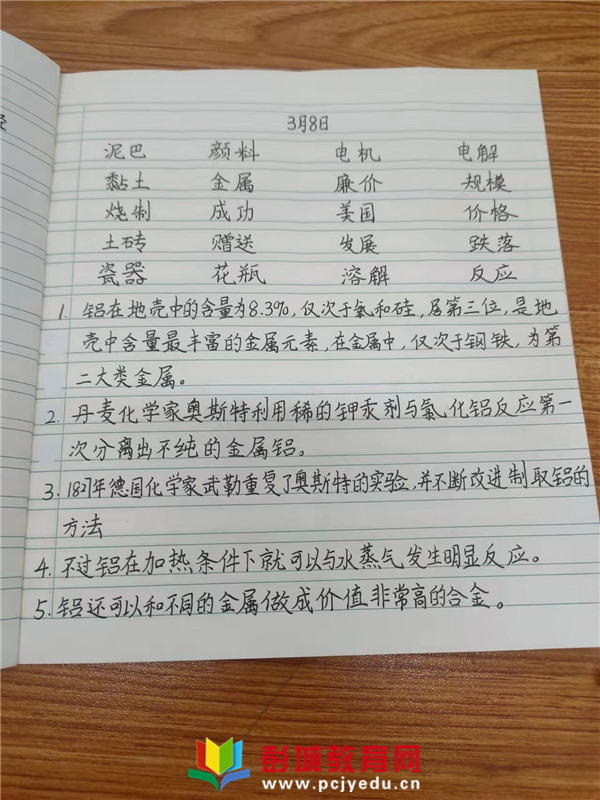 3月8日
泥巴 颜料 电机 电解
黏土 金属 廉价 规模
烧制 成功 美国 价格
土砖 赠送 发展 跌落
瓷器 花瓶 溶解 反应
1. 铝在地壳中的含量为8.3%,仅次于氧和硅,居第三位,是地
壳中含量最丰富的金属元素,在金属中,仅次于钢铁,为第
二大类金属。
2. 丹麦化学家奥斯特利用稀的钾汞剂与氯化铝反应第一
次分离出不纯的金属铝。
3. 1827年德国化学家武勒重复了奥斯特的实验,并不断改进制取铝的
方法
4. 不过铝在加热条件下就可以与水蒸气发生明显反应。
5. 铝还可以和不同的金属做成价值非常高的合金。
彭城教育网
www.pcjyedu.cn